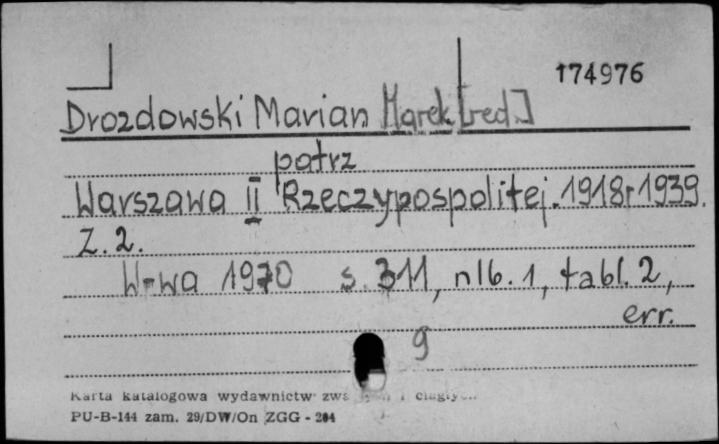 174976
Drozdowski Marian Marek [red.]
patrz
Warszawa II Rzeczypospolitej. 1918-1939.
Z. 2.
W-wa 1970 s. 311, nlb. 1, tabl. 2,
err.
9
Karta katalogowa wydawnictw
PU-B-144 zam. 29/DW/On ZGG - 204